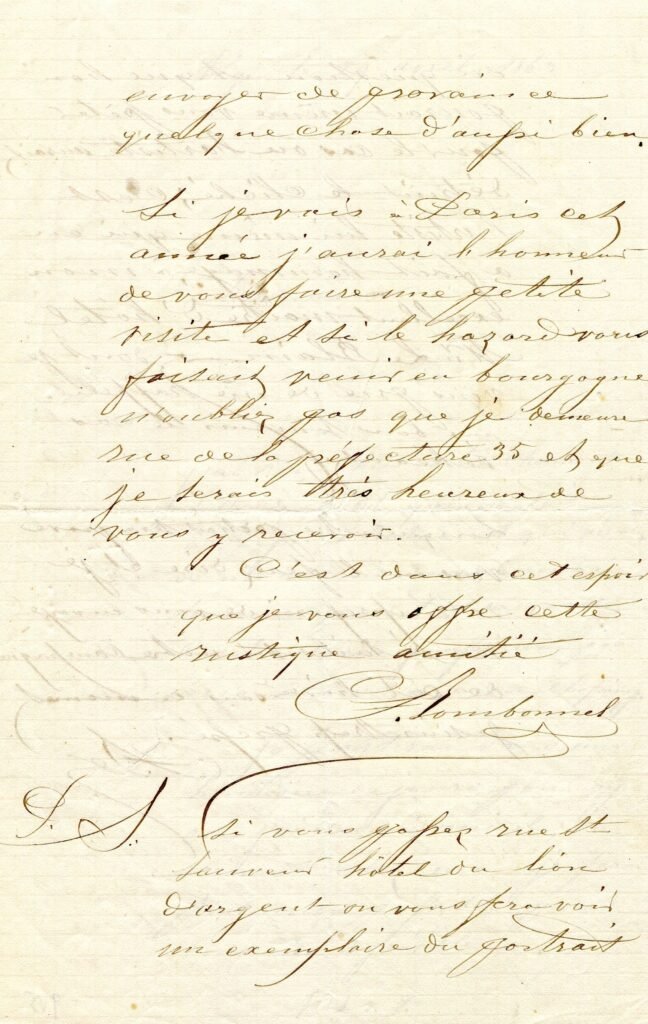 envoyer de provaince
quelque chose d'aussi bien.
Si je vais à Paris cet
année j'aurai l'honneur
de vous faire une petite
visite et si le hazard vous
faisait venir en bourgogne
n'oubliez pas que je demeure
rue de la préfecture 35 et que
je serais très heureux de
vous y recevoir.
C'est dans cet espoir
que je vous offre cette
rustique amitié
Bombonnel
P. S. Si vous passez rue St
Sauveur hôtel du lion
d'argent on vous fera voir
un exemplaire du portrait